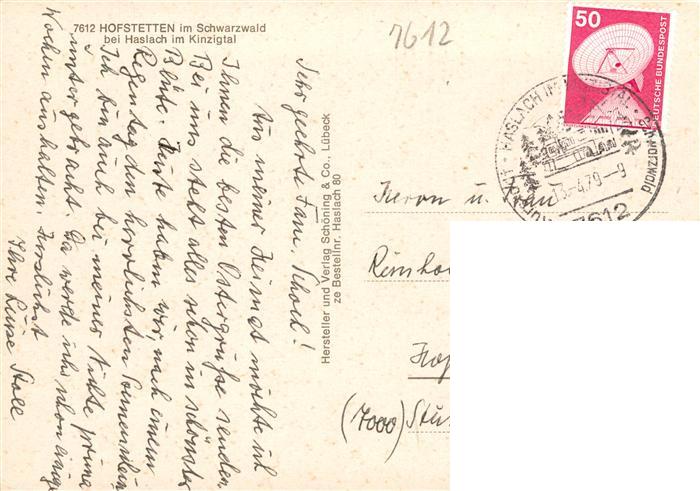 7612 HOFSTETTEN im Schwarzwald
bei Haslach im Kinzigtal
7612
50
DEUTSCHE BUNDESPOST
HASLACH IM SCHWARZWALD
13.-4.79-9
7612
Sehr geehrte Fam. Schoch!
Aus meiner Heimat möchte ich
Ihnen die besten Ostergrüße senden
Bei uns steht alles schon in schönster
Blüte. Heute haben wir, nach einem
Regentag den herrlichsten Sonnenschein
Ich bin auch bei meiner Nichte prima
untergebracht. Da werde ichs schon einige
Wochen aushalten. Herzlichst
Ihre Luise Stoll
Hersteller und Verlag Schöning & Co., Lübeck
ze Bestellnr. Haslach 80
Herrn u. Frau
Reinho
Hop
(7000) Stu